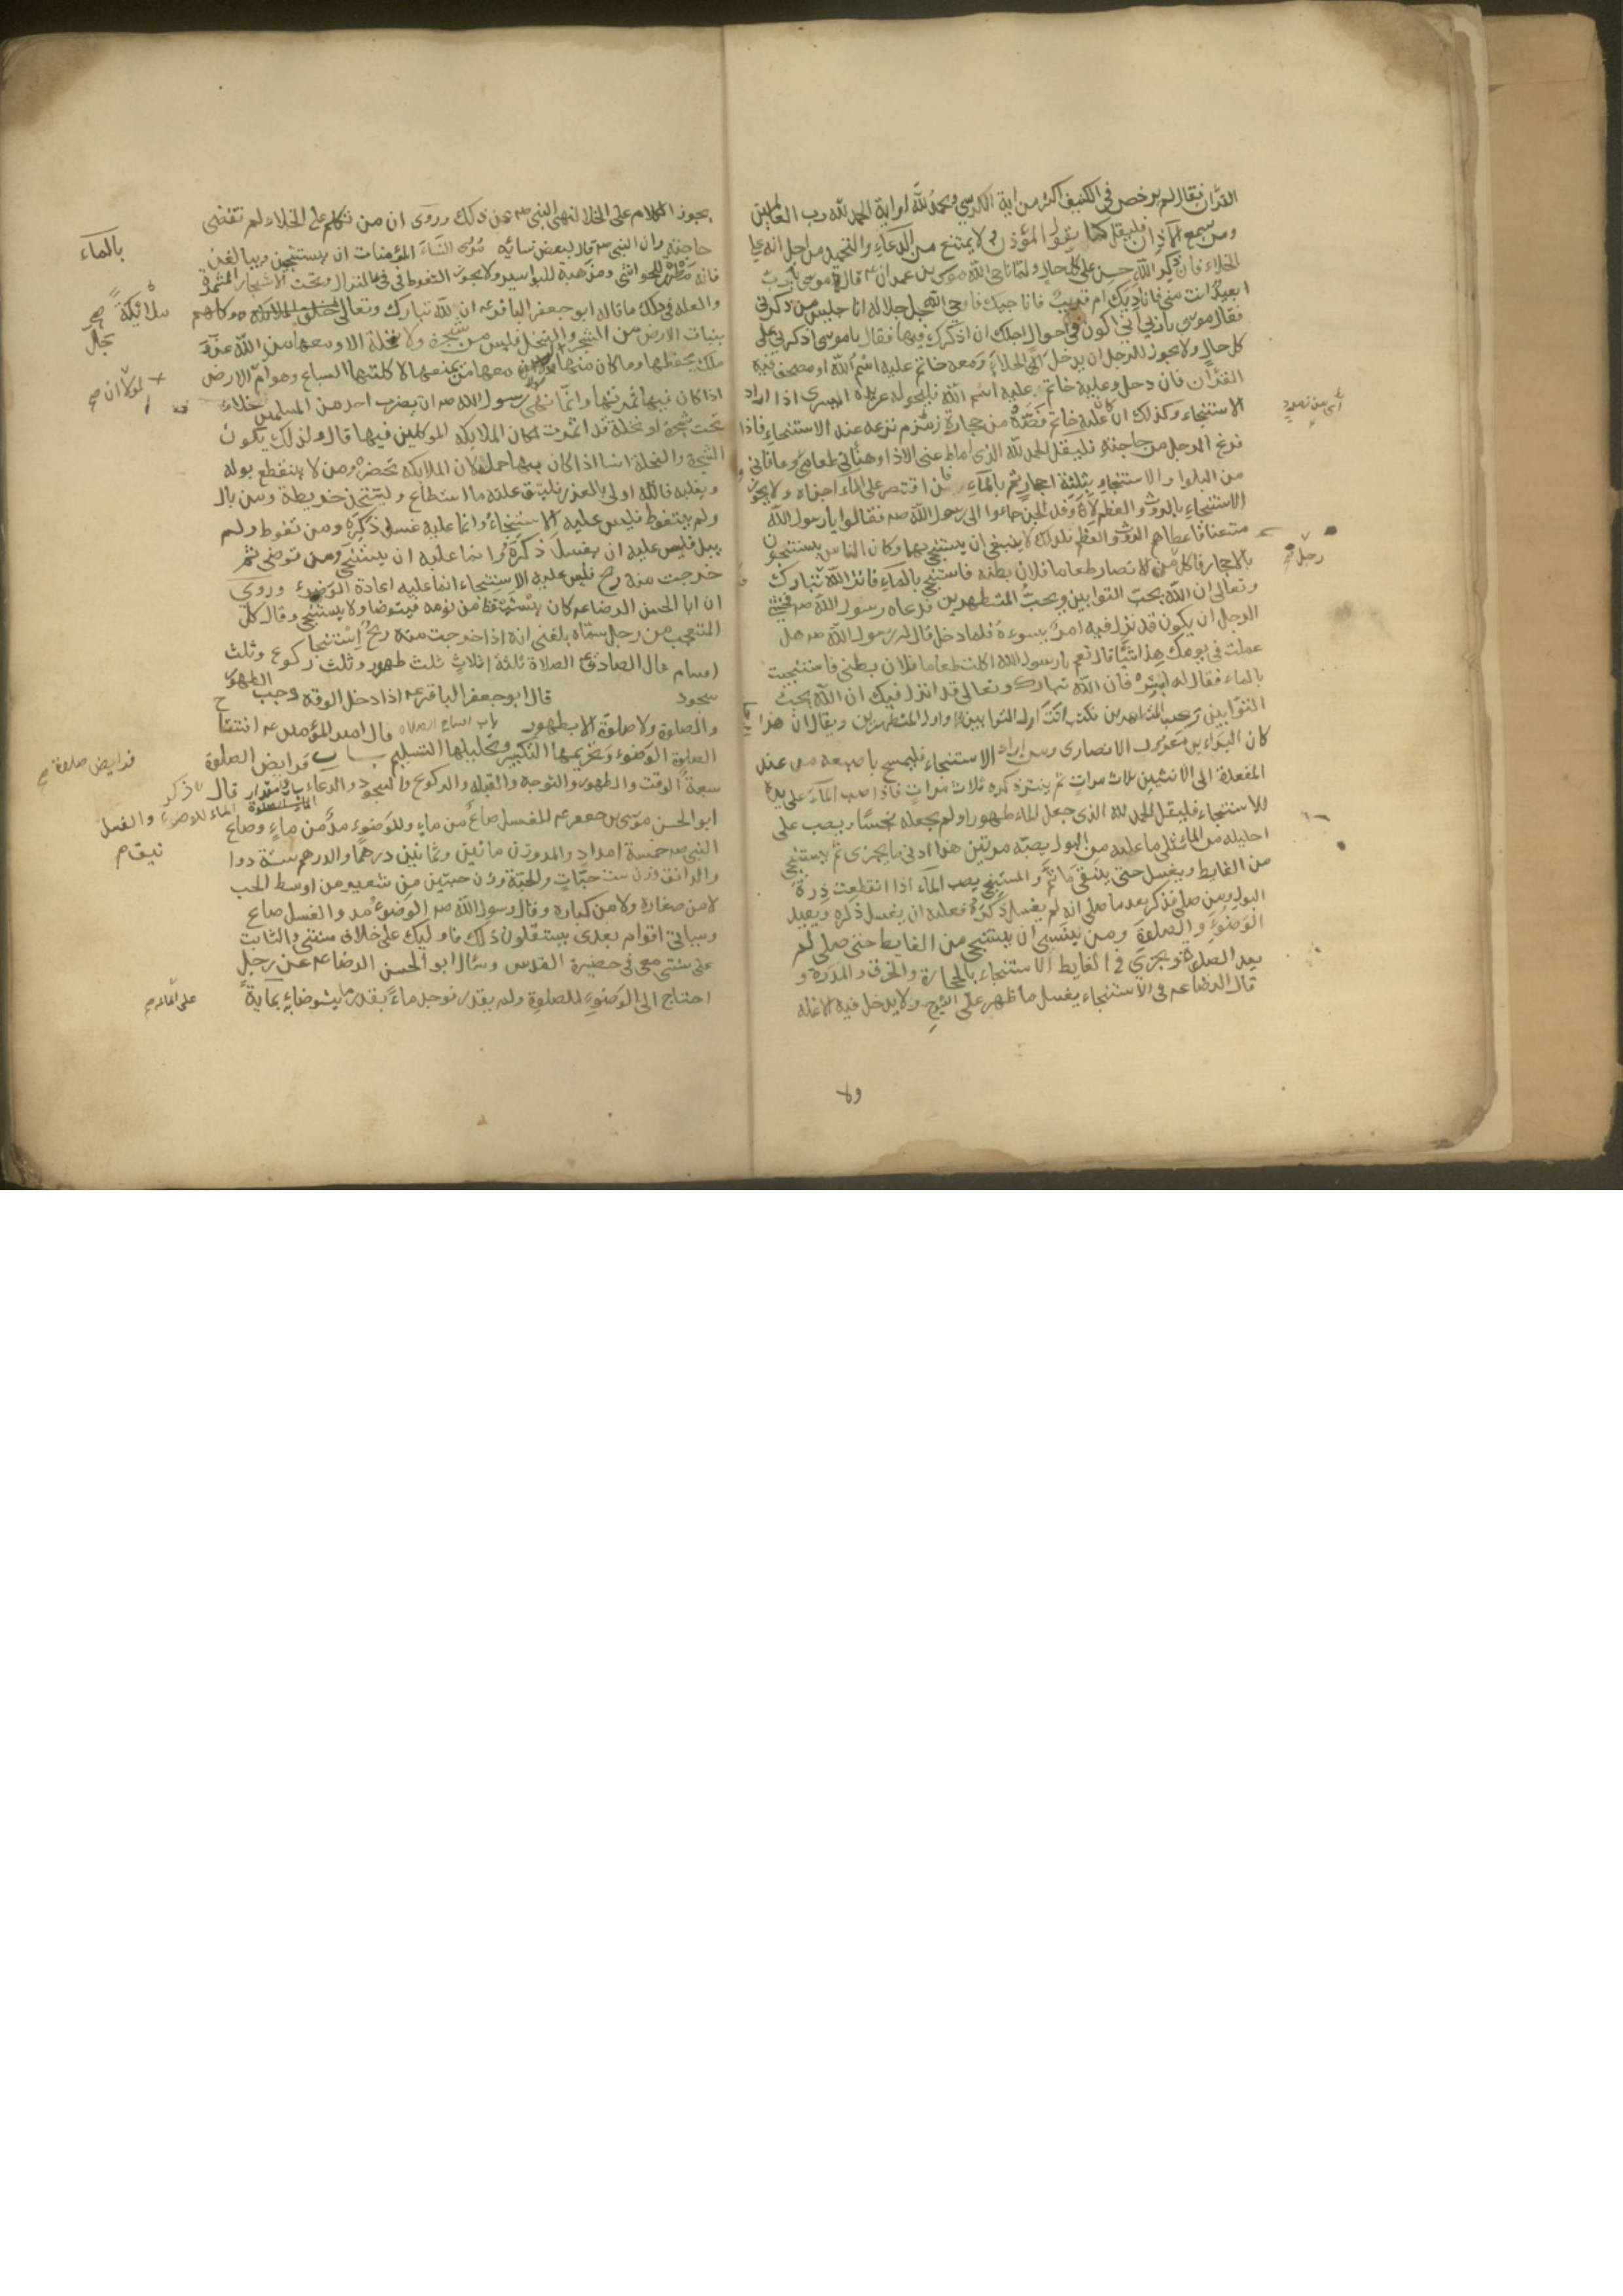 القرآن فقال لم يرخص في الكنيف اكثر من آية الكرسي ويحمد الله او آية الحمد لله رب العالمين
ومن سمع الاذان فليقل كما يقول المؤذن ولا يمتنع من الدعاء والتحميد من اجل انه على
الخلاء فان ذكر الله حسن على كل حال ولما ناجى الله موسى بن عمران ع قال موسى يا رب
ابعيد انت مني فاناديك ام قريب فاناجيك فاوحى الله جل جلاله انا جليس من ذكرني
فقال موسى يا رب اني اكون في احوال اجلك ان اذكرك فيها فقال يا موسى اذكرني على
كل حال ولا يجوز للرجل ان يدخل الى الخلاء ومعه خاتم عليه اسم الله او مصحف فيه
القرآن فان دخل وعليه خاتم عليه اسم الله فليحوله عن يده اليسرى اذا اراد
الاستنجاء وكذلك ان كان عليه خاتم فصه من حجارة زمزم نزعه عند الاستنجاء فاذا
فرغ الرجل من حاجته فليقل الحمد لله الذي اماط عني الاذا وهنأني طعامي وعافاني
من البلوا والاستنجاء بثلثة احجار ثم بالماء فان اقتصر على الماء اجزاه ولا يجوز
الاستنجاء بالروث والعظم لان وفد الجن جاءوا الى رسول الله صه فقالوا يا رسول الله
متعنا فاعطاهم الروث والعظم فلذلك لا ينبغي ان يستنجى بهما وكان الناس يستنجون
بالاحجار فاكل من الانصار طعاما فلان بطنه فاستنجى بالماء فانزل الله تبارك
وتعالى ان الله يحب التوابين ويحب المتطهرين فدعاه رسول الله صه فخشي
الرجل ان يكون قد نزل فيه امر يسوءه فلما دخل قال له رسول الله صه هل
عملت في يومك هذا شيئا قال نعم يا رسول الله اكلت طعاما فلان بطني فاستنجيت
بالماء فقال له ابشر فان الله تبارك وتعالى قد انزل فيك ان الله يحب
التوابين ويحب المتطهرين فكنت انت اول التوابين واول المتطهرين ويقال ان هذا
كان البراء بن معرور الانصاري ومن اراد الاستنجاء فليمسح باصبعه من عند
المقعدة الى الانثيين ثلاث مرات ثم ينتر ذكره ثلاث مرات فاذا صب الماء على يده
للاستنجاء فليقل الحمد لله الذي جعل الماء طهورا ولم يجعله نجسا ويصب على
احليله من الماء مثلي ما عليه من البول يصبه مرتين هذا ادنى ما يجزي ثم يستنجي
من الغايط ويغسل حتى ينقى ما ثم والمستنجي يصب الماء اذا انقطعت درة
البول ومن صلى فذكر بعد ما صلى انه لم يغسل ذكره فعليه ان يغسل ذكره ويعيد
الوضوء والصلوة ومن نسي ان يستنجي من الغايط حتى صلى لم
يعد الصلوة ويجزي في الغايط الاستنجاء بالحجارة والخزف والمدرة و
قال الرضا ع في الاستنجاء يغسل ما ظهر على الشرج ولا يدخل فيه الانملة
رجل صح
ولا
يجوز الكلام على الخلا لنهي النبي صه عن ذلك وروى ان من تكلم على الخلاء لم تقضى
حاجته وان النبي صه قال لبعض نسائه مري النساء المؤمنات ان يستنجين ويبالغن
بالماء
فانه مطهرة للحواشي ومذهبة للبواسير ولا يجوز التغوط في فئ النزال وتحت الاشجار المثمرة
والعلة في ذلك ما قاله ابو جعفر الباقر ع ان لله تبارك وتعالى ملائكة وكلهم
ملائكة صح
بنبات الارض من الشجر والنخل فليس من شجرة ولا نخلة الا ومعها من الله عز و
جل
ملك يحفظها وما كان منها ولولا ان معها من يمنعها لاكلتها السباع وهوام الارض
لولا ان صح
اذا كان فيها ثمرتها وانما نهى رسول الله صه ان يضرب احد من المسلمين خلاءه
تحت شجرة او نخلة قد اثمرت لمكان الملايكة الموكلين فيها قال ولذلك يكون
الشجرة والنخلة انسا اذا كان فيها حمله لان الملايكة تحضره ومن لا ينقطع بوله
ويغلبه فالله اولى بالعذر فليتق علته ما استطاع وليتخذ خريطة ومن بال
ولم يتغوط فليس عليه الاستنجاء وانما عليه غسل ذكره ومن تغوط ولم
يبل فليس عليه ان يغسل ذكره وانما عليه ان يستنجي ومن توضى ثم
خرجت منه ريح فليس عليه الاستنجاء انما عليه اعادة الوضوء وروى
ان ابا الحسن الرضا ع كان يستيقظ من نومه فيتوضا ولا يستنجي وقال كـ
المتعجب من رجل سماه بلغني انه اذا خرجت منه ريح استنجا
اقسام قال الصادق ع الصلاة ثلثة اثلاث ثلث طهور وثلث ركوع وثلث
سجود قال ابو جعفر الباقر ع اذا دخل الوقت وجب الطهور
والصلوة ولا صلوة الا بطهور قال امير المؤمنين ع افتتاح
الصلوة الوضوء وتحريمها التكبير وتحليلها التسليم باب فرايض الصلوة
سبعة الوقت والطهور والتوجه والقبلة والركوع والسجود والدعاء باب مقدار الماء للوضوء والغسل قال
ابو الحسن موسى بن جعفر ع للغسل صاع من ماء وللوضوء مد من ماء وصاع
النبي صه خمسة امداد والمد وزن مائتين وثمانين درهما والدرهم ستة دوا
نيق م
والدانق وزن ست حبات والحبة وزن حبتين من شعير من اوسط الحب
لا من صغاره ولا من كباره وقال رسول الله صه الوضوء مد والغسل صاع
وسياتي اقوام بعدي يستقلون ذلك فاوليك على خلاف سنتي والثابت
على سنتي معي في حضيرة القدس وسئل ابو الحسن الرضا ع عن رجل
احتاج الى الوضوء للصلوة ولم يقدر فوجد ماء بقدر ما يتوضا به بماية